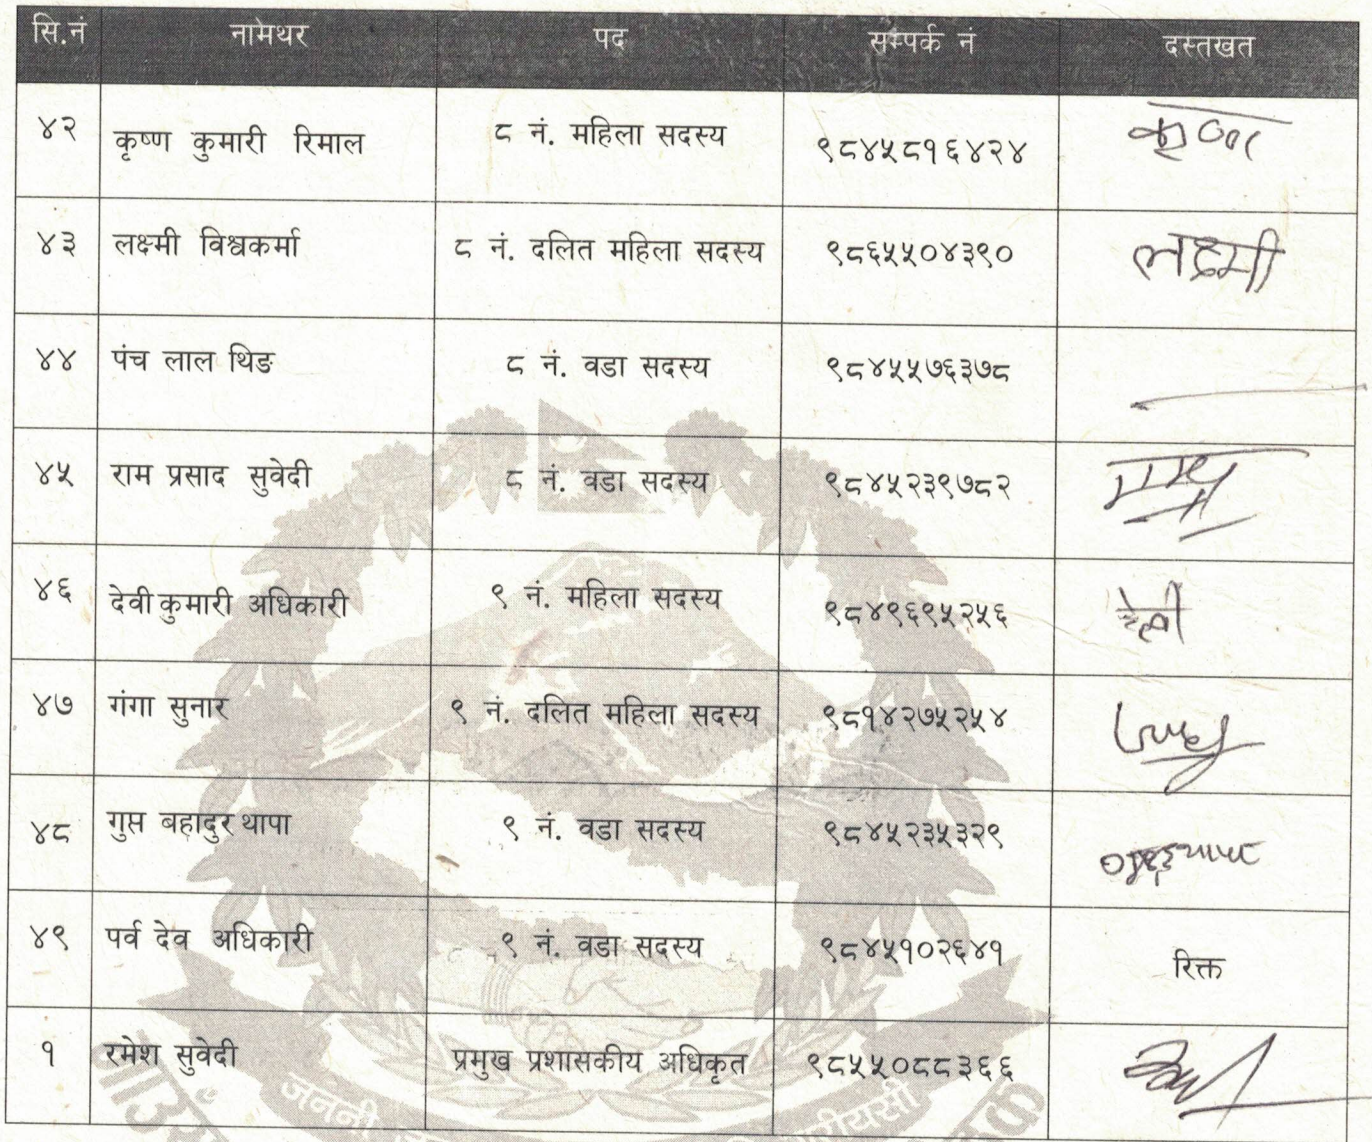 सि.नं नामथर पद सम्पर्क नं दस्तखत
४२ कृष्ण कुमारी रिमाल ८ नं. महिला सदस्य ९८४५८१६४२४ कृष्ण
४३ लक्ष्मी विश्वकर्मा ८ नं. दलित महिला सदस्य ९८६५५०४३९० लक्ष्मी
४४ पंच लाल थिङ ८ नं. वडा सदस्य ९८४५५७६३७८
४५ राम प्रसाद सुवेदी ८ नं. वडा सदस्य ९८४५२३९७८२
४६ देवी कुमारी अधिकारी ९ नं. महिला सदस्य ९८४९६९५२५६ देवी
४७ गंगा सुनार ९ नं. दलित महिला सदस्य ९८१४२७५२५४
४८ गुप्त बहादुर थापा ९ नं. वडा सदस्य ९८४५२३५३२९
४९ पर्व देव अधिकारी ९ नं. वडा सदस्य ९८४५१०२६४१ रिक्त
१ रमेश सुवेदी प्रमुख प्रशासकीय अधिकृत ९८५५०८८३६६
जननी